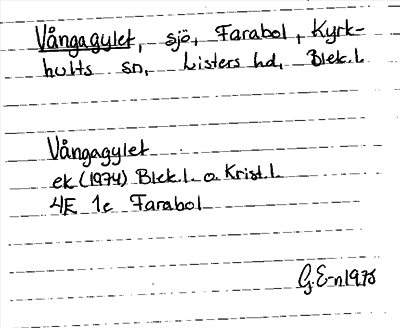 Vångagylet, sjö, Farabol, Kyrk-
hults sn, Listers hd, Blek.l.
Vångagylet
ek (1974) Blek.l. o. Krist.l.
4E 1e Farabol
G.E-n 1976